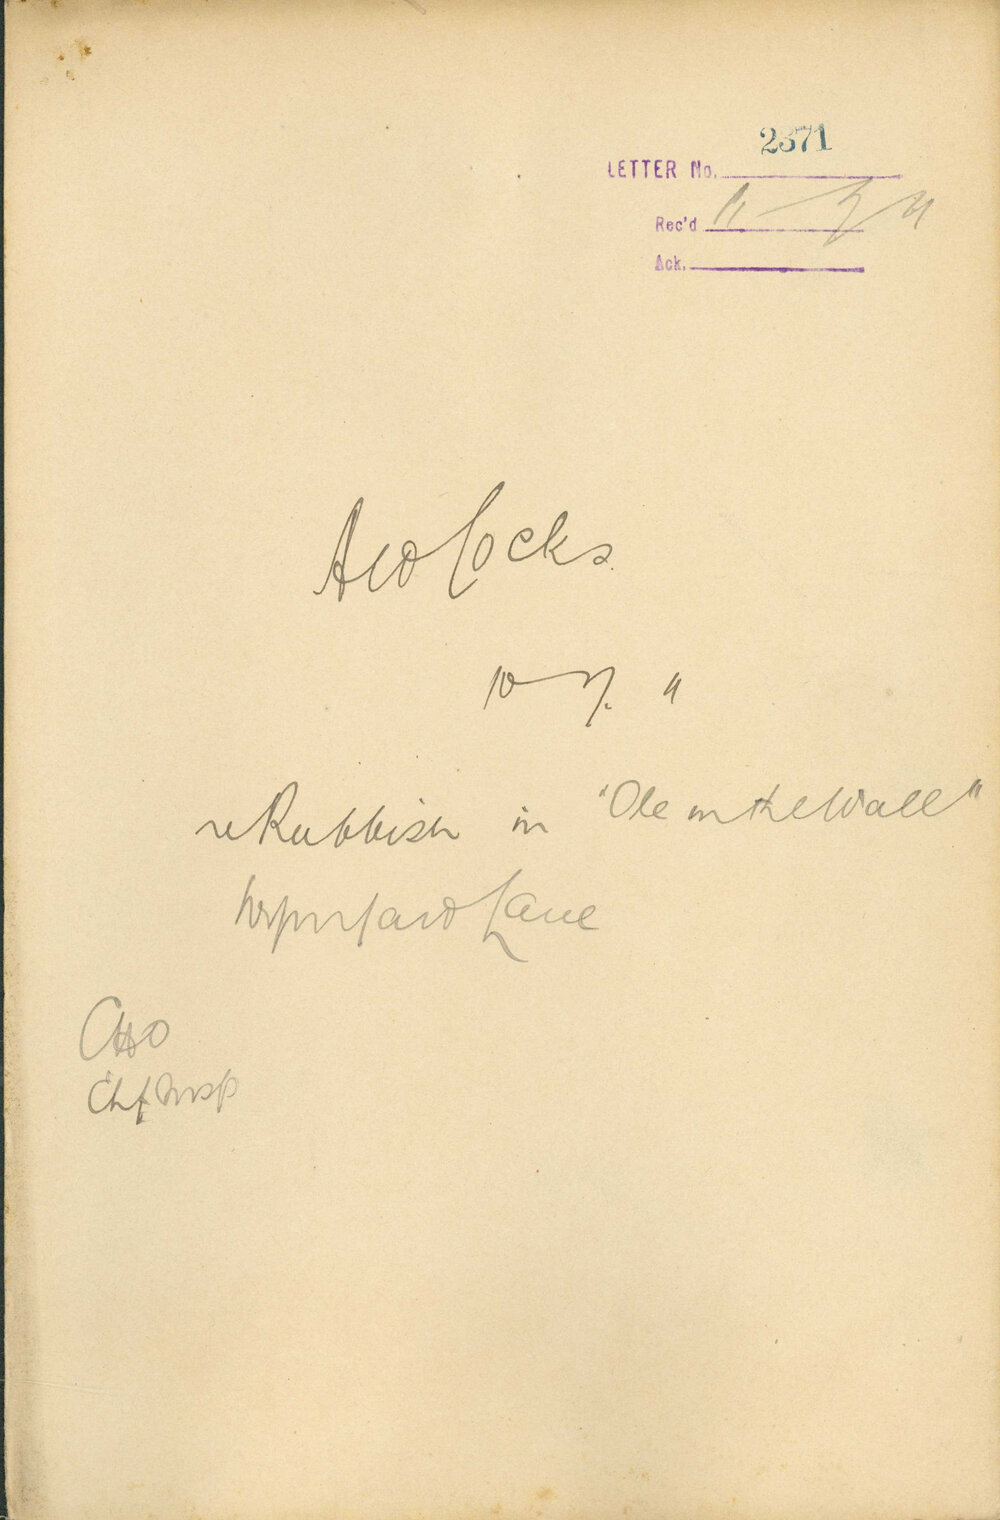 2371
LETTER No.
Rec'd 11-7-11
Ack.
Ald Cocks
10-7. 11
re Rubbish in "Ole in the Wall"
Lane
CHO
Ch f Insp